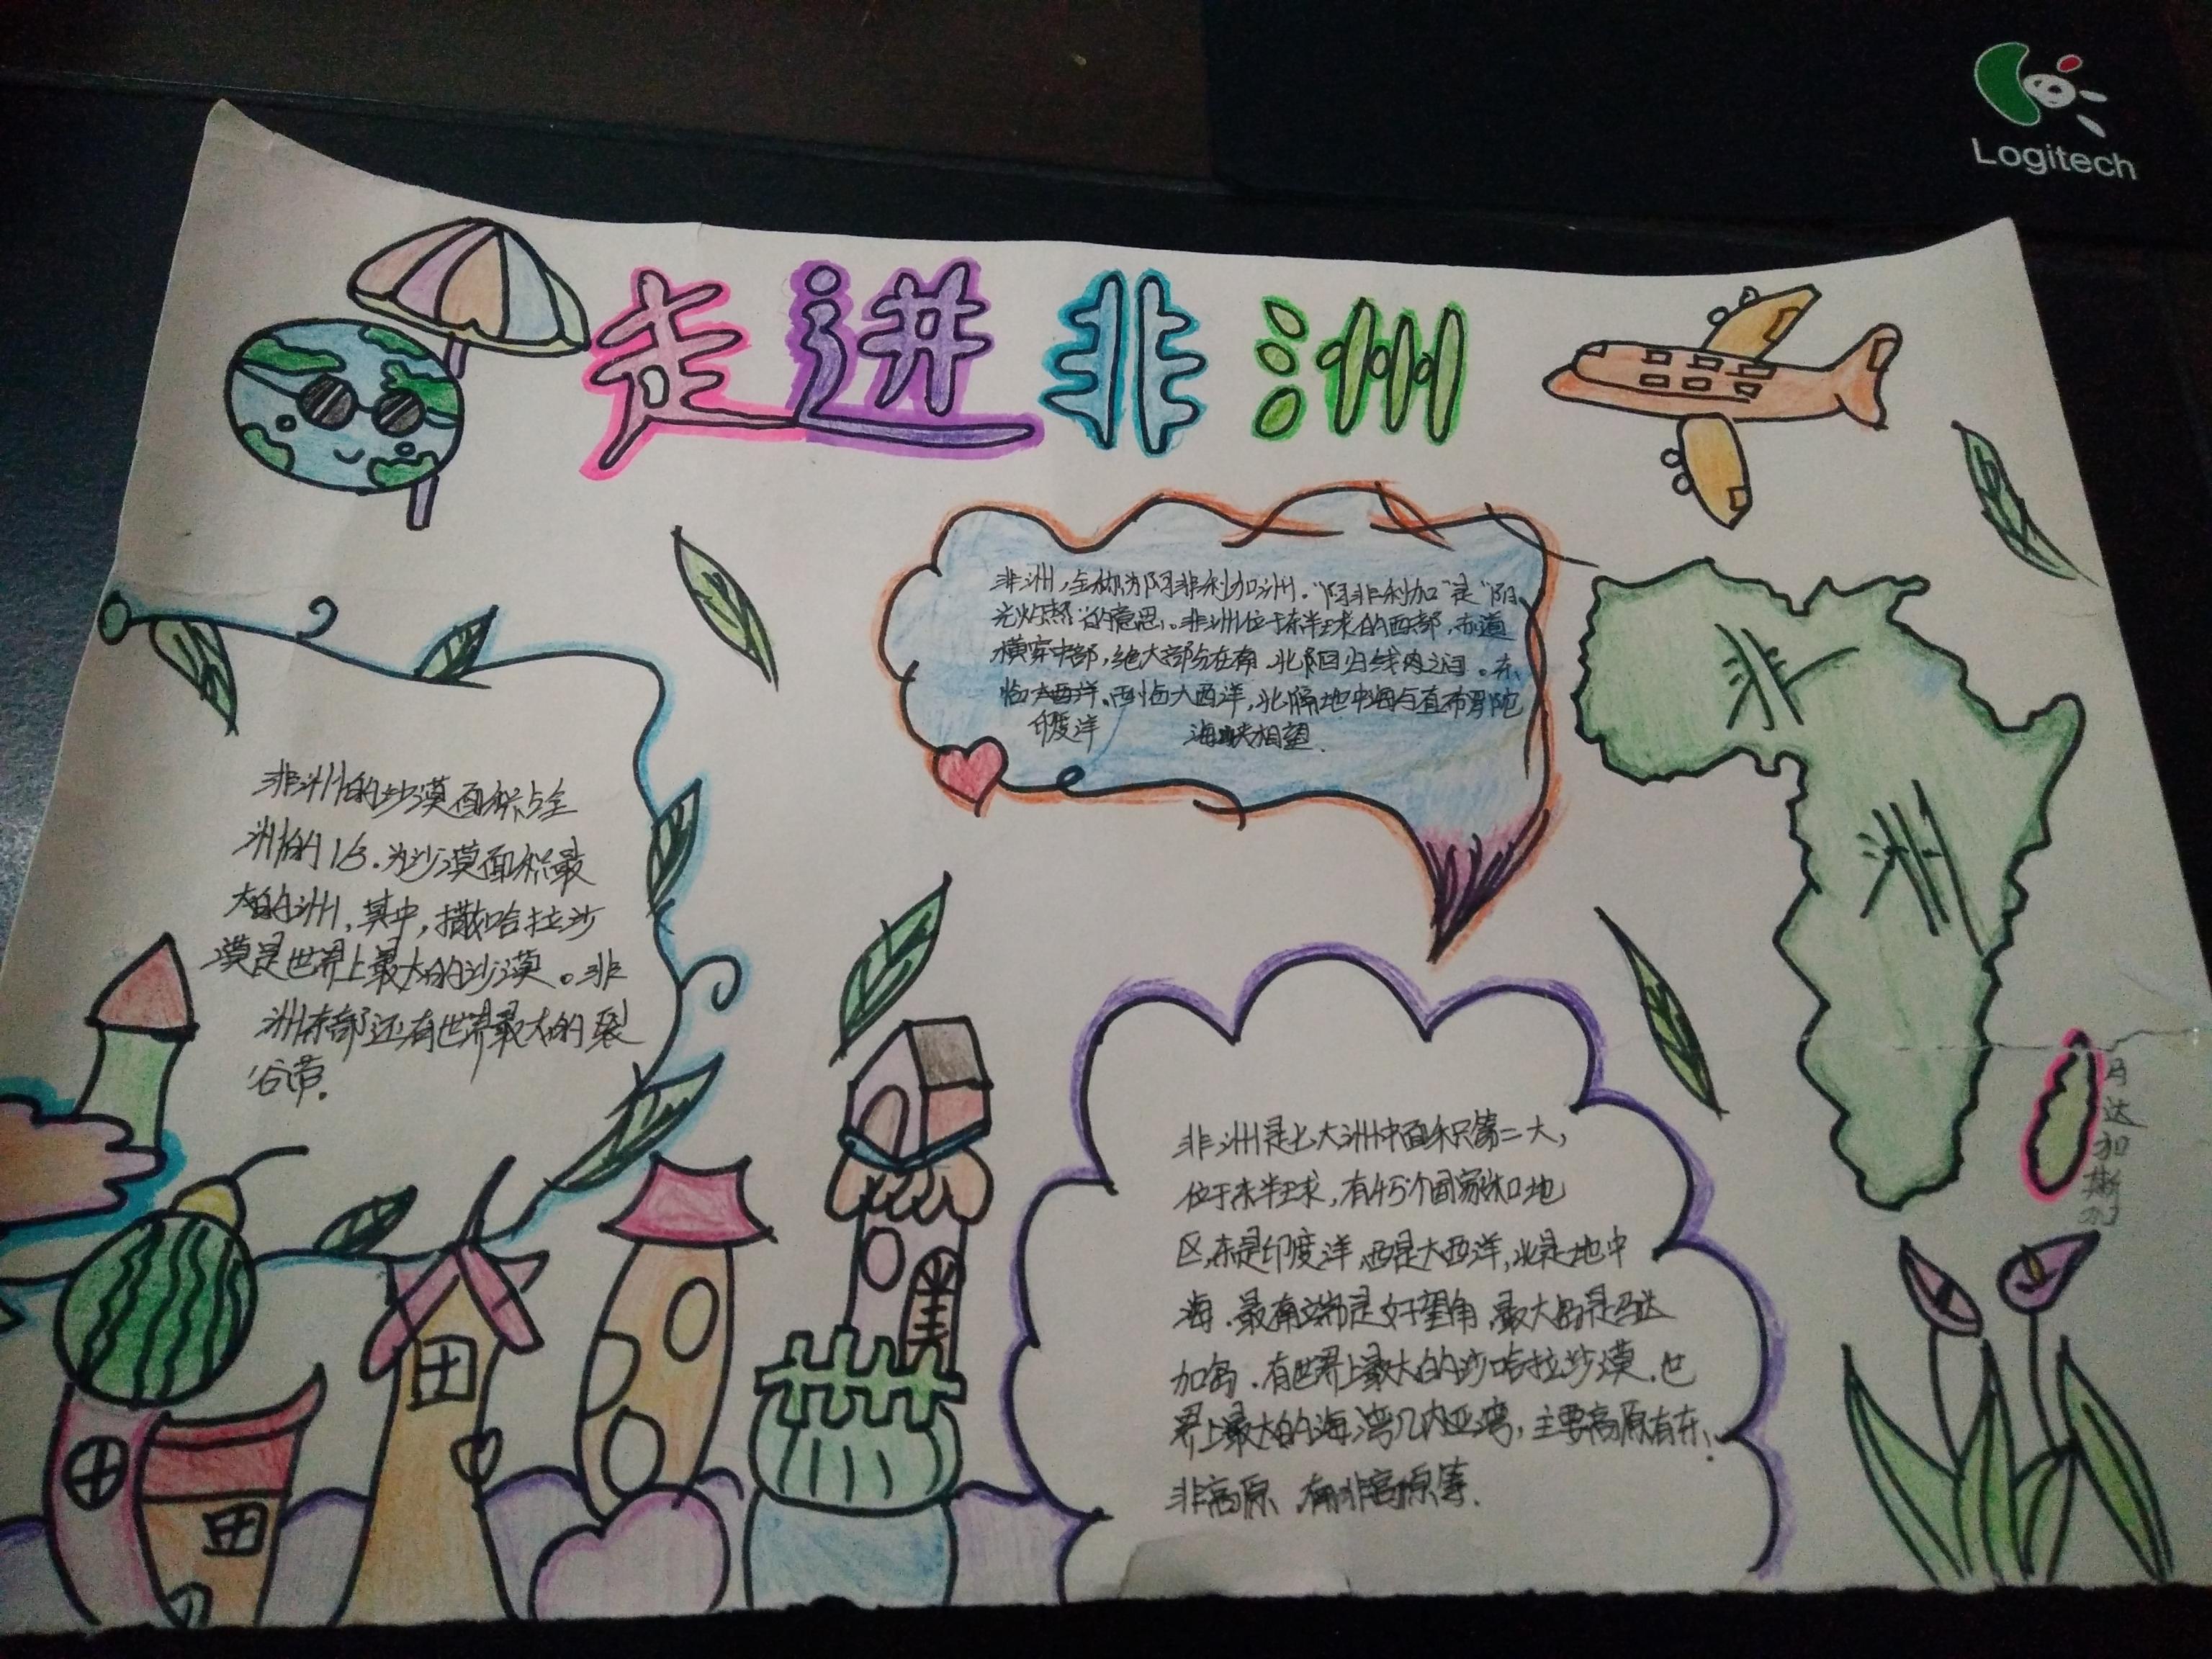 Logitech
走进非洲
非洲,全称为阿非利加洲。"阿非利加"是"阳
光灼热"的意思。非洲位于东半球的西部,赤道
横穿中部,绝大部分在南.北回归线内之间。东
临大西洋.西临大西洋,北隔地中海与直布罗陀
印度洋 海峡相望.
非洲
非洲的沙漠面积占全
洲的1/3.为沙漠面积最
大的洲,其中,撒哈拉沙
漠是世界上最大的沙漠。非
洲东部还有世界最大的裂
谷带.
马达加斯加
非洲是七大洲中面积第二大,
位于东半球,有45个国家和地
区,东是印度洋,西是大西洋,北是地中
海.最南端是好望角,最大岛是马达
加岛.有世界上最大的沙哈拉沙漠.世
界上最大的海湾几内亚湾,主要高原有东
非高原、南非高原等.